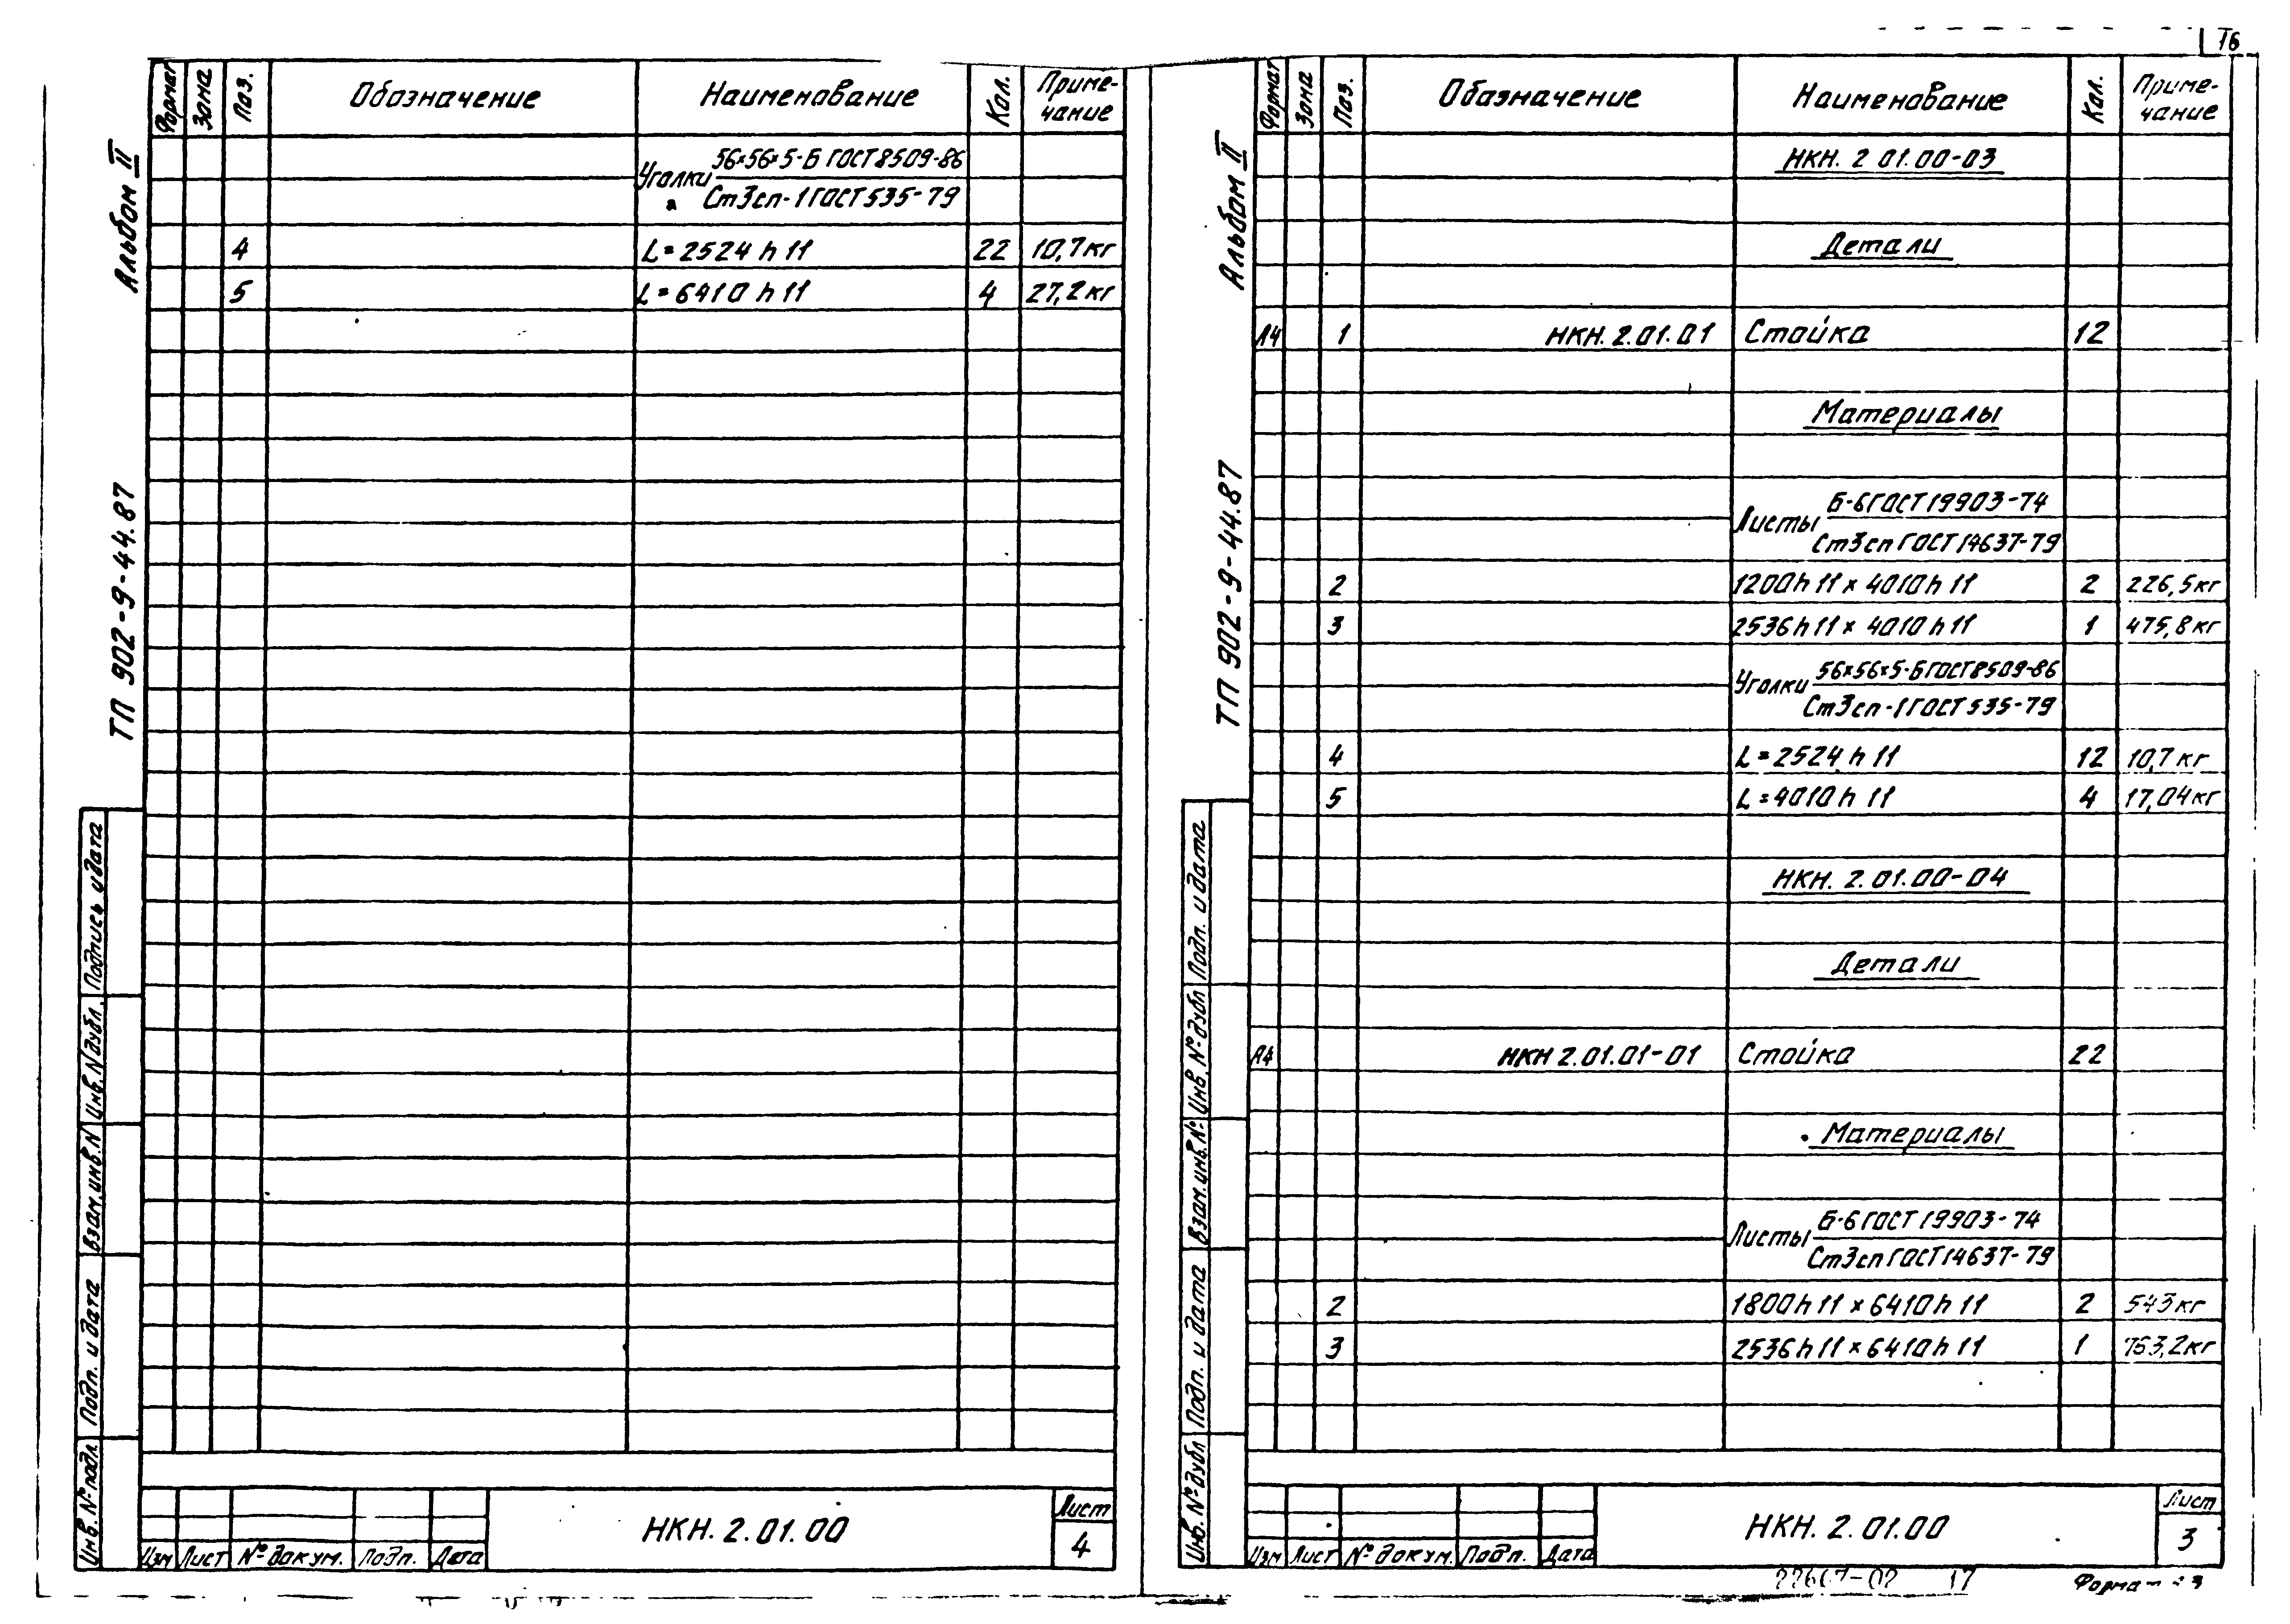 16
Альбом II
ТП 902-9-44.87
Формат Зона Поз. Обозначение Наименование Кол. Приме-
чание
Уголки 56×56×5-Б ГОСТ 8509-86
Ст3сп-1 ГОСТ 535-79
4 L=2524 h 11 22 10,7кг
5 L=6410 h 11 4 27,2кг
Подпись и дата
Инв. N дубл.
Взам. инв. N
Подп. и дата
Инв. № подл
Изм Лист № докум. Подп. Дата
НКН. 2.01.00
Лист
4
Альбом II
ТП 902-9-44.87
Формат Зона Поз. Обозначение Наименование Кол. Приме-
чание
НКН. 2 01.00-03
Детали
А4 1 НКН. 2.01.01 Стойка 12
Материалы
Листы Б-6 ГОСТ 19903-74
Ст3сп ГОСТ 14637-79
2 1200 h 11 × 4010 h 11 2 226,5кг
3 2536 h 11 × 4010 h 11 1 475,8кг
Уголки 56×56×5-Б ГОСТ 8509-86
Ст3сп-1 ГОСТ 535-79
4 L=2524 h 11 12 10,7 кг
5 L=4010 h 11 4 17,04кг
НКН. 2.01.00-04
Детали
А4 НКН 2.01.01-01 Стойка 22
Материалы
Листы Б-6 ГОСТ 19903-74
Ст3сп ГОСТ 14637-79
2 1800 h 11 × 6410 h 11 2 543кг
3 2536 h 11 × 6410 h 11 1 763,2кг
Подп. и дата
Инв. № дубл
Взам. инв. №
Подп. и дата
Инв. № дубл
Изм Лист № докум. Подп. Дата
НКН. 2.01.00
Лист
3
17
Формат